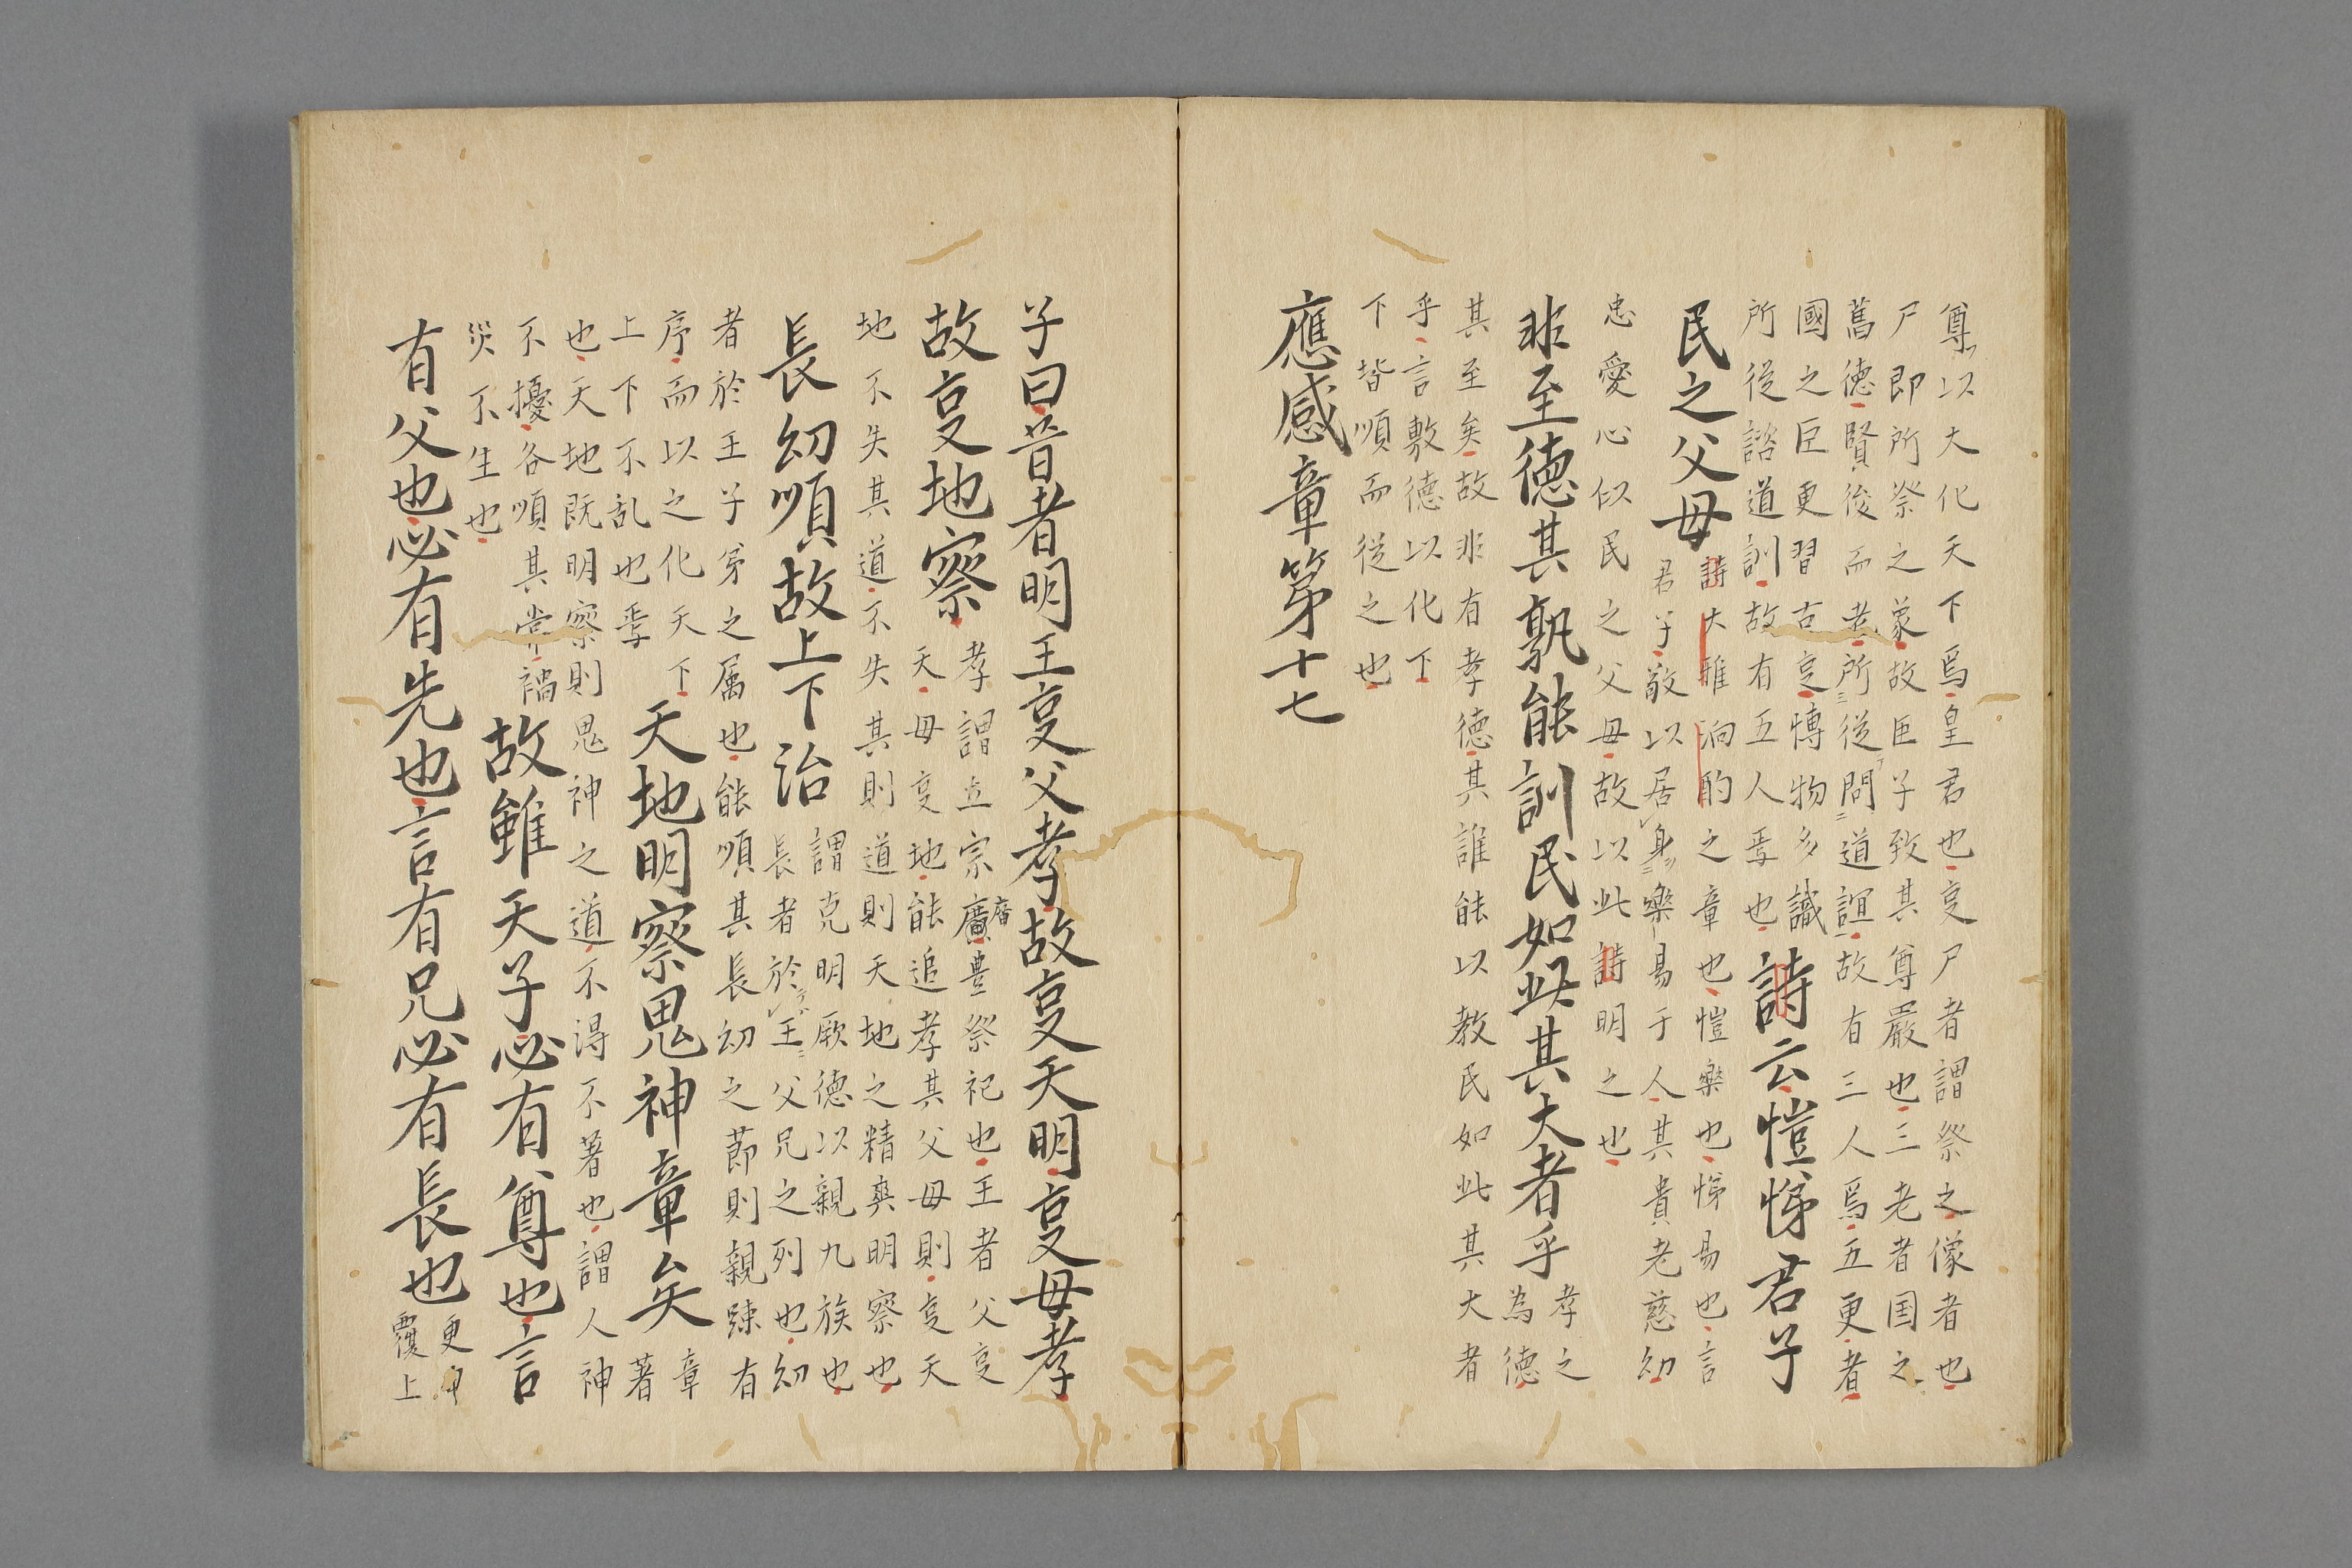 尊以大化天下焉皇君也㕝尸者謂祭之像者也
尸即所祭之象故臣子致其尊嚴也三老者国之
舊徳賢俊而老所從問道誼故有三人焉五更者
國之臣更習古㕝愽物多識
所從諮道訓故有五人焉也
詩云愷悌君子
民之父母
詩大雅泂酌之章也愷樂也悌易也言
君子敬以居身樂易于人其貴老慈幼
忠愛心似民之父母故以此詩明之也
非至徳其孰能訓民如此其大者乎
孝之
為徳
其至矣故非有孝徳其誰能以教民如此其大者
乎言敷徳以化下
下皆順而從之也
應感章第十七
子曰昔者明王㕝父孝故㕝天明㕝母孝
故㕝地察
孝謂立宗廣豊祭祀也王者父㕝
廟
天母㕝地能追孝其父母則㕝天
地不失其道不失其則道則天地之精爽明察也
長幼順故上下治
謂克明厥徳以親九族也
長者於王父兄之列也幼
者於王子弟之属也能順其長幼之莭則親踈有
序而以之化天下
上下不乱也
天地明察鬼神章矣
章
著
也天地既明察則鬼神之道不得不著也謂人神
不擾各順其常禍
災不生也
故雖天子必有尊也言
有父也必有先也言有兄必有長也
更
覆上